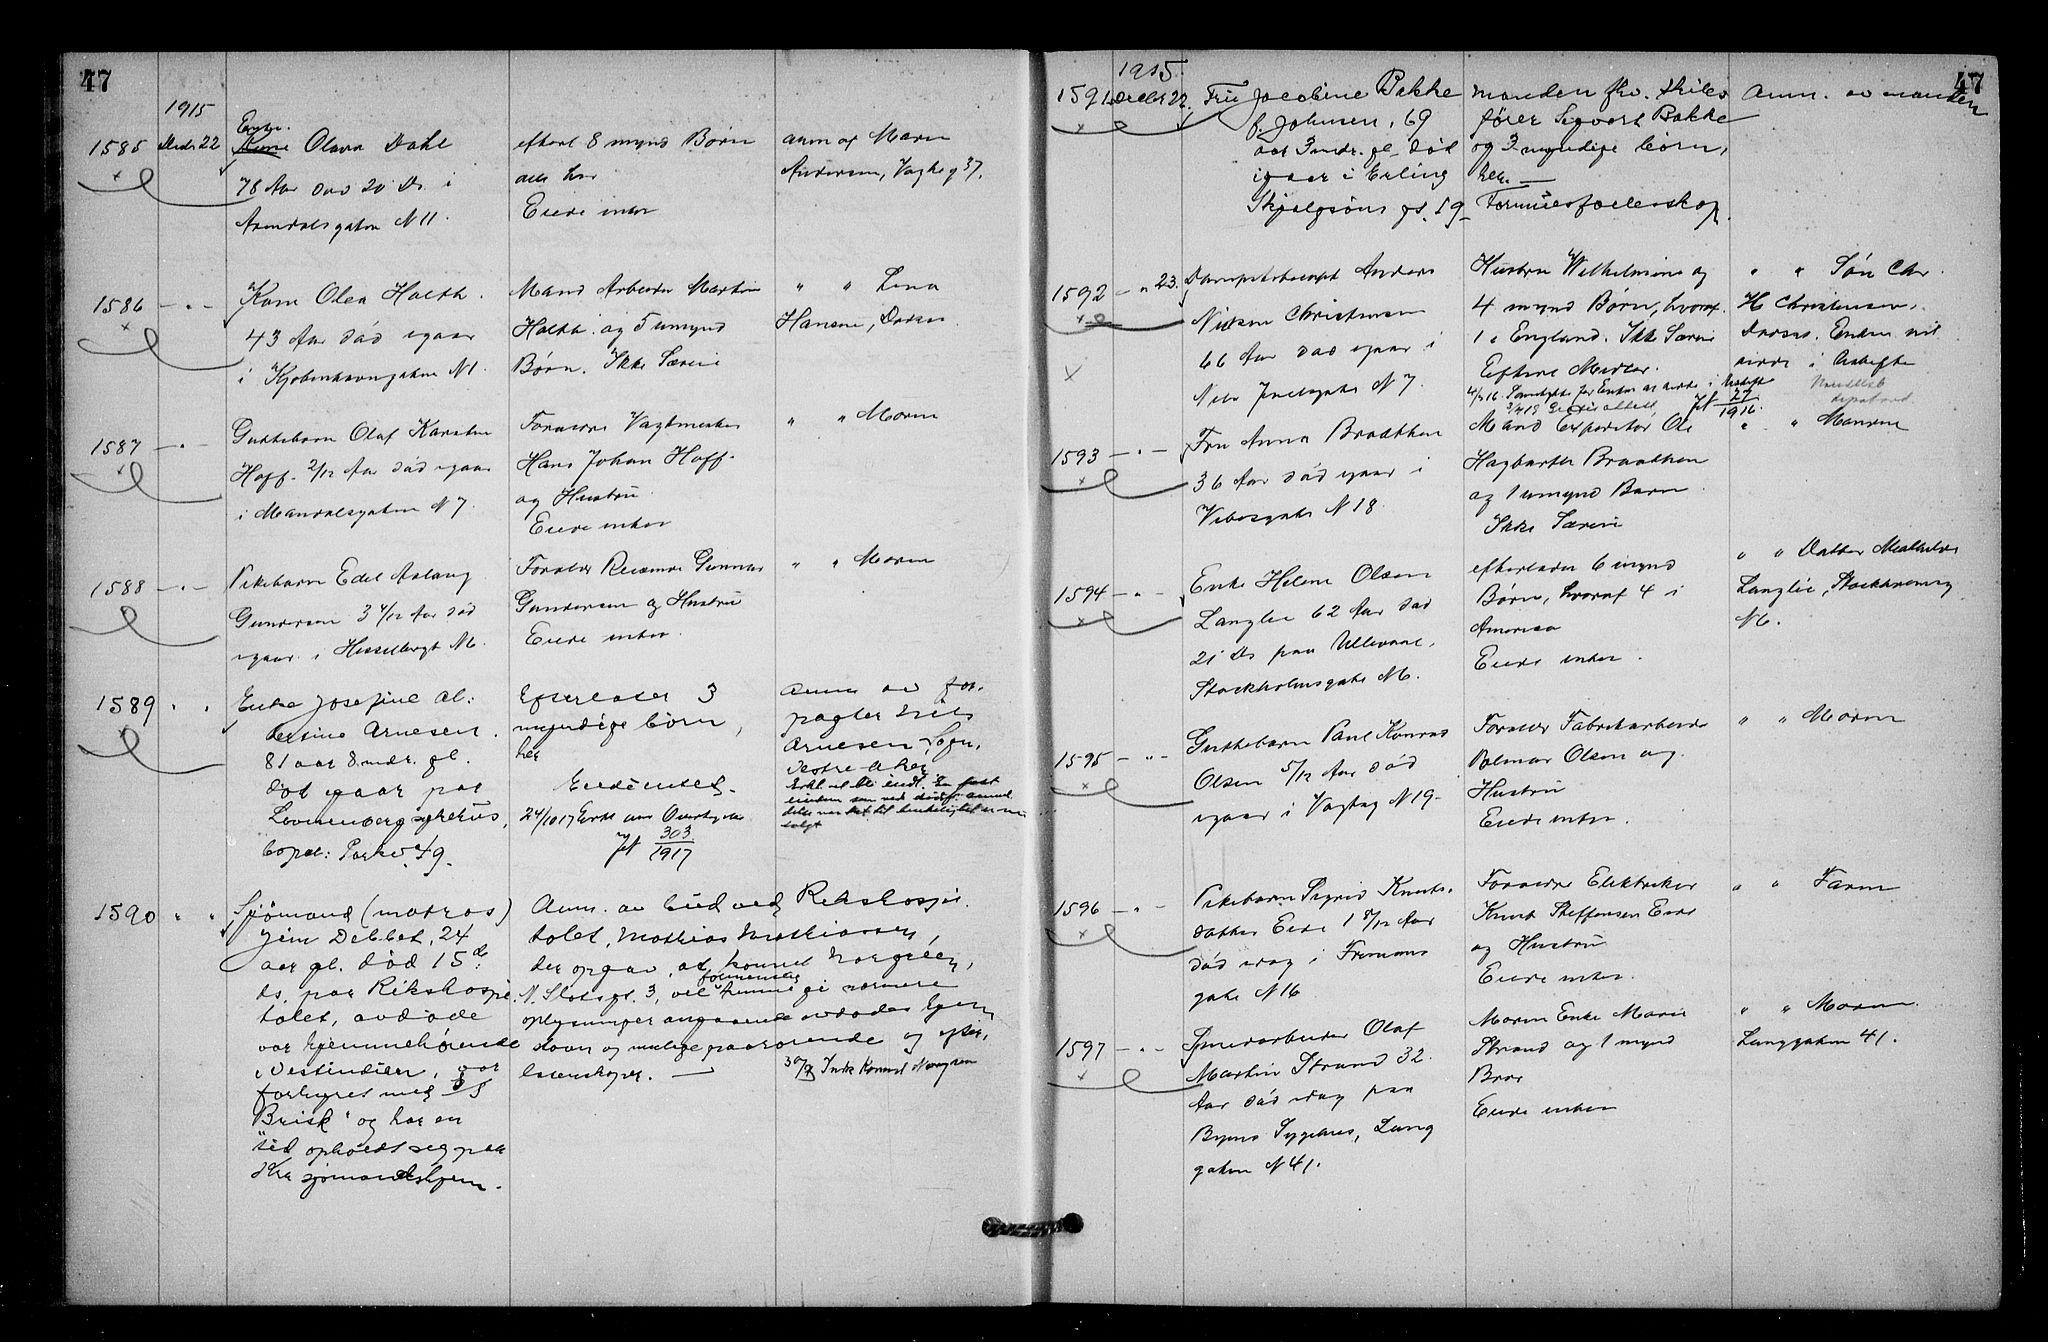 47
1915
1585 Decbr 22
Enke.
Kone Olava Dahl
78 Aar død 20 Ds i
Arendalsgaten N 11.
efterl 8 mynd Børn
alle her
Eiede intet
anm af Maren
Andersen, Vogts g 37.
1586 — " —
Kone Olea Holth.
43 Aar død igaar
i Kjøbenhavngaten N 1.
Mand Arbeider Martin
Holth. og 5 umynd
Børn. Ikke Særeie
" " Lena
Hansen,
1587 — " —
Guttebarn Olaf Karsten
Hoff. 2/12 Aar død igaar
i Mandalsgaten N 7
Forældre Vagtmester
Hans Johan Hoff.
og Hustru
Eiede intet
" " Moren
1588 — " —
Pikebarn Edel Aslaug
Gundersen 3 4/12 Aar død
igaar i Hesselbergt N 6.
Forældre Gunnar
Gundersen og Hustru
Eiede intet.
" " Moren
1589 " "
Enke Josefine Al:
bertine Arnesen.
81 aar 8 mdr. gl.
død igaar paa
Lovisenberg sykehus,
bopæl: Parkv. 49.
Efterlater 3
myndige børn,
her
Eiede intet.
24/10 17
Jf 303/1917
Anm av for-
pagter Nils
Arnesen, Sogn,
Vestre Aker
solgt
1590 " "
Sjømand (matros)
Jim Debbet, 24
aar gl. død 15de
ds. paa Rikshospi-
talet, avdøde
var hjemmehørende
i Vestindien, var
forhyret med D/S
"Brisk" og har en
tid opholdt seg paa
Kra sjømandshjem.
Anm. av bud ved Rikshospi-
talet, Mathias Mathiassen,
der opgav, at konsul Norgreen,
N. Slotsgt. 3, vil formentlig kunne gi nærmere
oplysninger angaaende avdødes Egen-
dom og mulige paarørende og efter-
latenskaper. —
47
1915.
1591 Decbr 22.
Fru Jacobine Bakke
f. Johnsen, 69
aar 3 mdr. gl. død
igaar i Erling
Skjalgsøns gt. 19
manden fhv. skibs
fører Sigvart Bakke
og 3 myndige børn,
her. —
Formuesfællesskap.
Anm. av manden
1592 — " 23.
Anders
Nielsen Christensen
66 Aar død igaar i
Niels Juelsgate N 7.
Hustru Wilhelmine og
4 mynd Børn, hvoraf
1 i England. Ikke Særeie
Efterl Midler.
Jf 27/1916.
" " Søn Chr.
H Christensen,
Drøbak. Enken vil
sidde i Uskifte
1593 — " —
Fru Anna Braathen
36 Aar død igaar i
Vibesgate N 18.
Mand Expeditør Ole
Hagbarth Braathen
og 1 umynd Barn
Ikke Særeie
" " Manden
1594 — " —
Enke Helene Olsen
Langlie 62 Aar død
21 Ds paa Ullevaal,
Stockholmsgate N 6.
efterlader 6 mynd
Børn, hvoraf 4 i
Amerika
Eiede intet.
" " Datter Mathilde
Langlie, Stockholmsg
N 6.
1595 — " —
Guttebarn Paul Konrad
Olsen 5/12 Aar død
igaar i Vogtsg N 19-
Forældre Fabrikarbeider
Olsen og
Hustru
Eiede intet.
" " Moren
1596 — " —
Pikebarn Sigrid Knuts-
datter Eide 1 8/12 Aar
død idag i Fremans
gate N 16
Forældre Elektriker
Knut Steffensen Eide
og Hustru
Eiede intet.
" " Faren
1597 — " —
Smedarbeider Olaf
Martin Strand 32
Aar død idag paa
Byens Sygehus, Lang
gaten N 41.
Moren Enke Marie
Strand og 1 mynd
Bror
Eiede intet
" " Moren.
Langgaten 41.